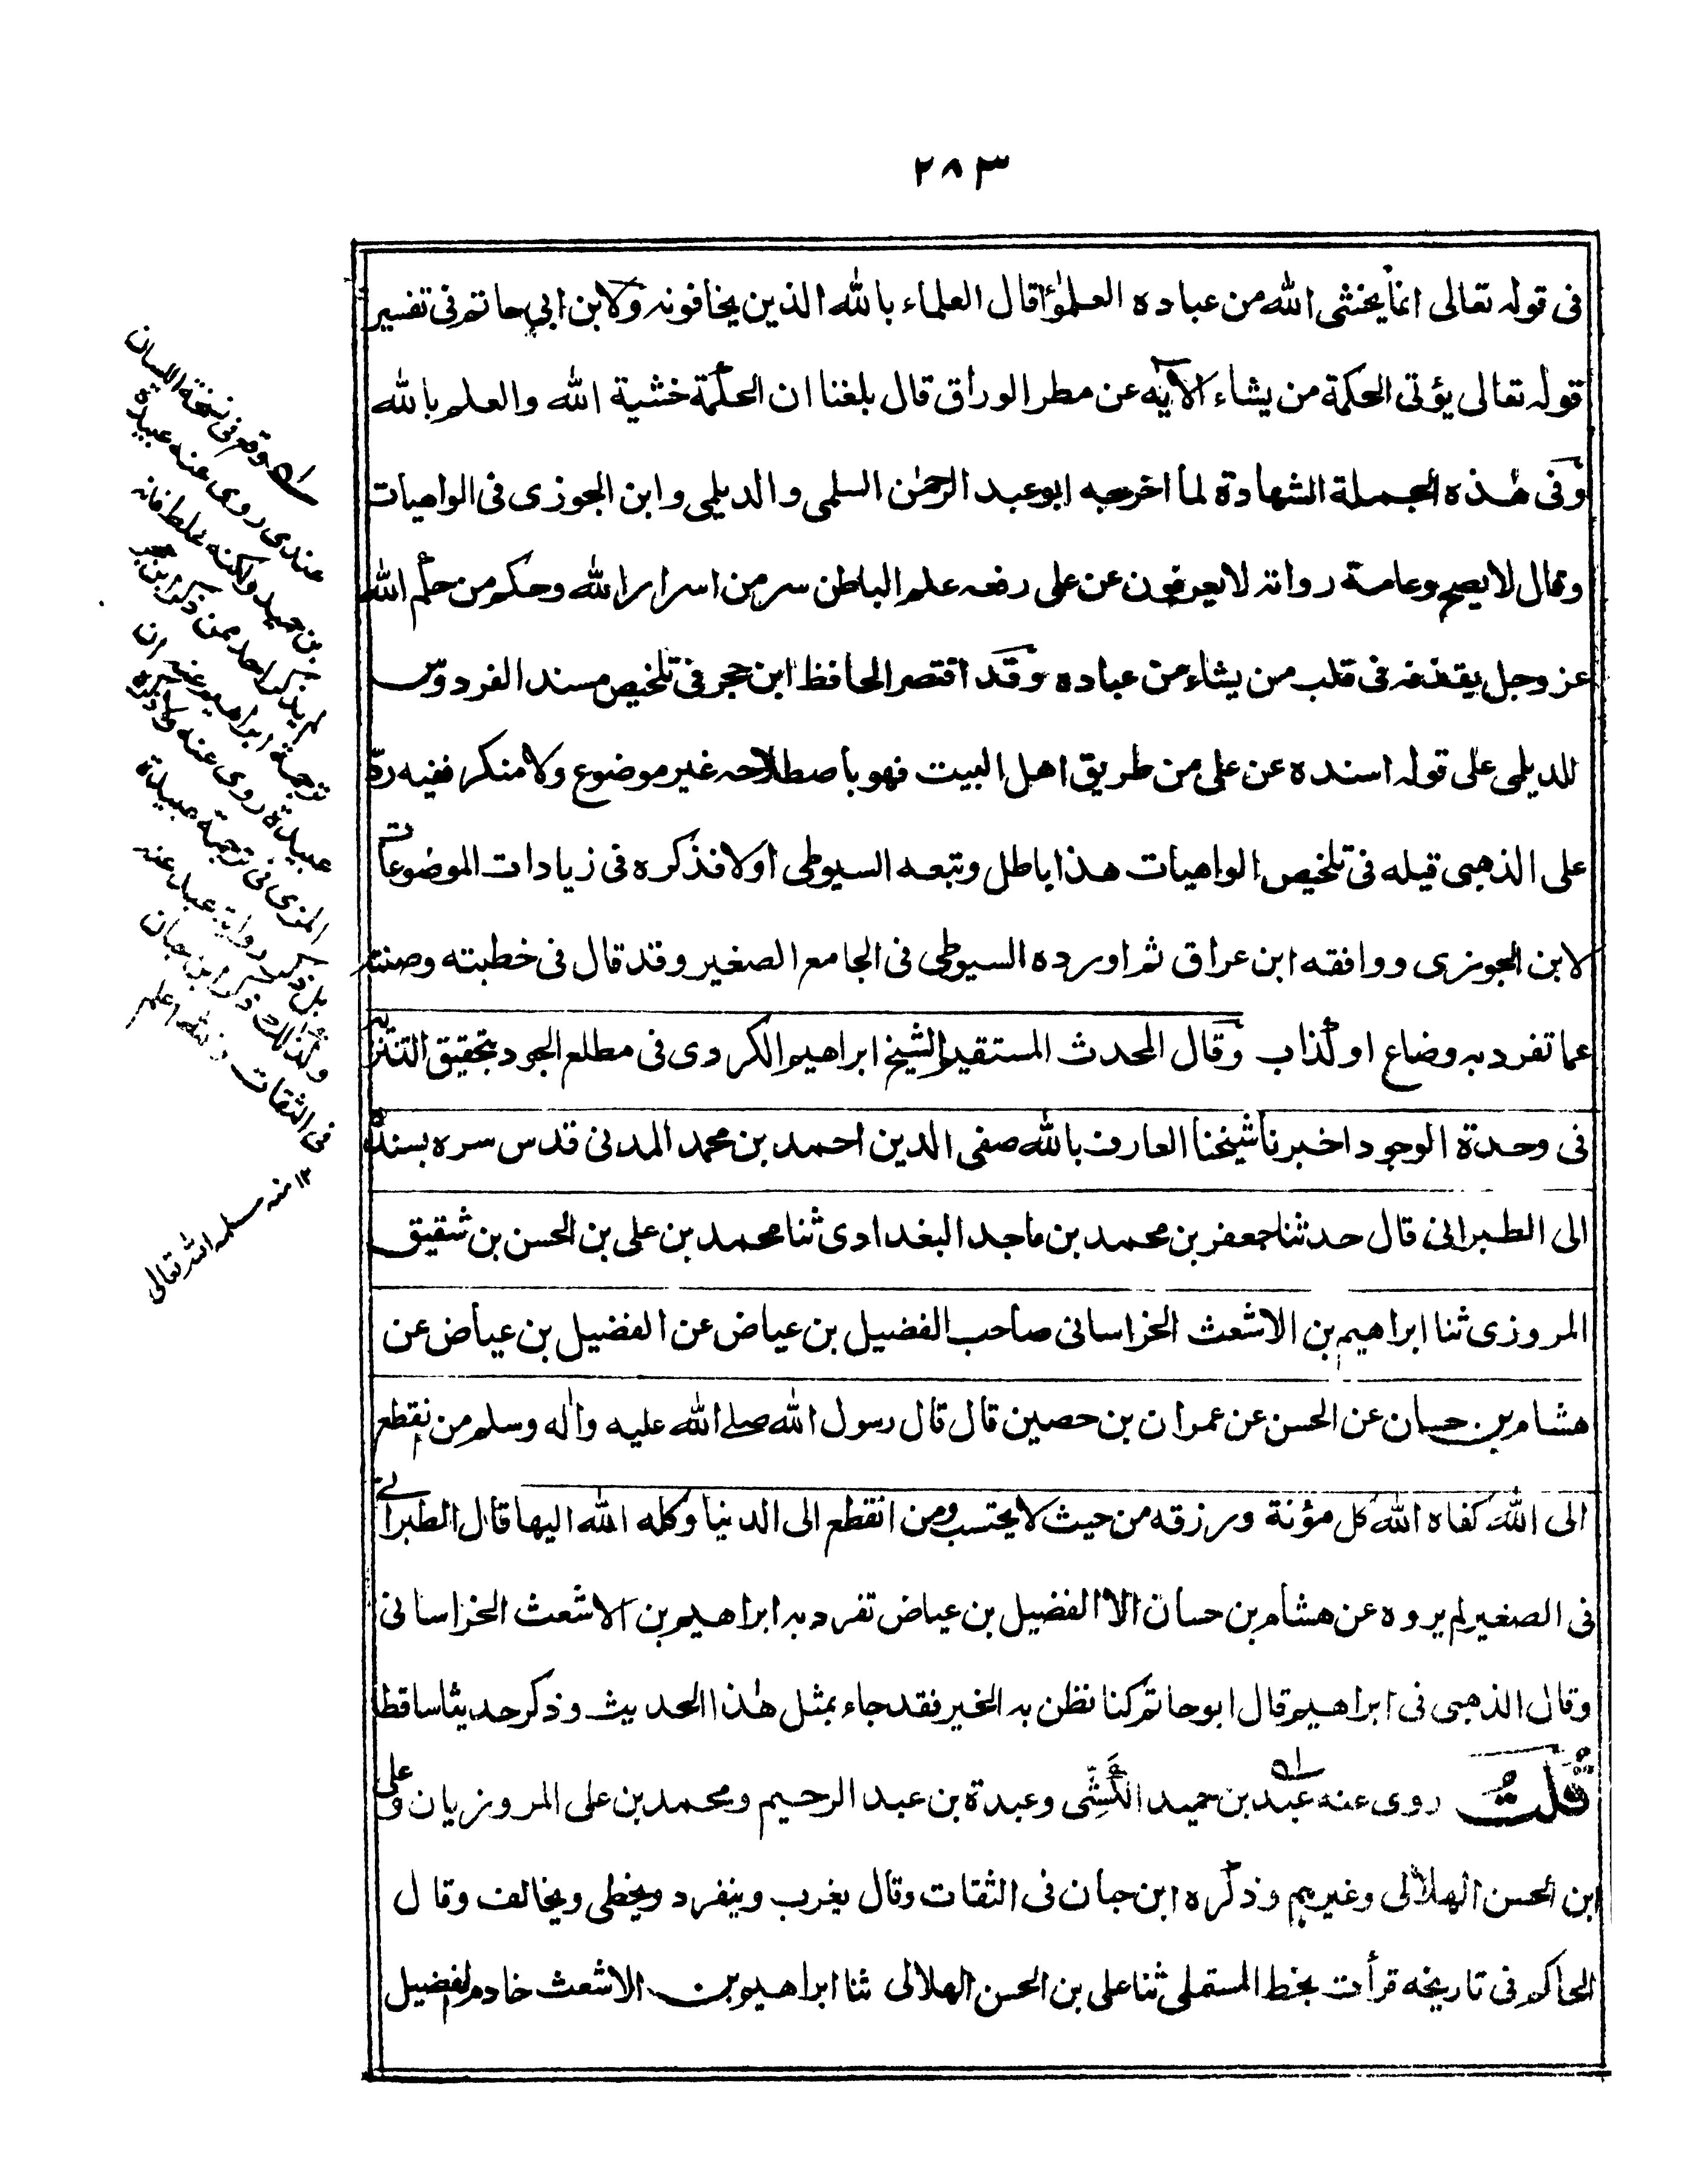 ٢٨٣
فى قوله تعالى انما يخشى الله من عباده العلمٰؤا قال العلماء بالله الذين يخافونه ولابن ابي حاتم فى تفسير
قوله تعالى يؤتى الحكمة من يشاء الآية عن مطر الوراق قال بلغنا ان الحكمة خشية الله والعلم بالله
وفى هٰذه الجملة الشهادة لما اخرجه ابو عبد الرحمٰن السلمى والديلمى وابن الجوزى فى الواهيات
وقال لا يصح وعامة رواته لا يعرفون عن على رفعه علم الباطن سر من اسرار الله وحكم من حكم الله
عز وجل يقذفه فى قلب من يشاء من عباده وقد اقتصر الحافظ ابن حجر فى تلخيص مسند الفردوس
للديلمى على قوله اسنده عن على من طريق اهل البيت فهو باصطلاحه غير موضوع ولا منكر ففيه ردّ
على الذهبى قيله فى تلخيص الواهيات هذا باطل وتبعه السيوطى اولا فذكره فى زيادات الموضوعات
لابن الجوزى ووافقه ابن عراق ثم اورده السيوطى فى الجامع الصغير وقد قال فى خطبته وصنته
عما تفرد به وضاع او كذاب وقال المحدث المستقيم الشيخ ابراهيم الكردى فى مطلع الجود بتحقيق التنزيه
فى وحدة الوجود اخبرنا شيخنا العارف بالله صفى الدين احمد بن محمد المدنى قدس سره بسنده
الى الطبرانى قال حدثنا جعفر بن محمد بن ماجد البغدادى ثنا محمد بن على بن الحسن بن شقيق
المروزى ثنا ابراهيم بن الاشعث الخراسانى صاحب الفضيل بن عياض عن الفضيل بن عياض عن
هشام بن حسان عن الحسن عن عمران بن حصين قال قال رسول الله صلے الله عليه واٰله وسلم من نقطع
الى الله كفاه الله كل مؤنة ورزقه من حيث لا يحتسب ومن انقطع الى الدنيا وكله الله اليها قال الطبرانے
فى الصغير لم يروه عن هشام بن حسان الا الفضيل بن عياض تفرد به ابراهيم بن الاشعث الخراسانى
وقال الذهبى فى ابراهيم قال ابو حاتم كنا نظن به الخير فقد جاء بمثل هٰذا الحديث وذكر حديثا ساقطا
قُلتُ روى عنه عبد بن حميد الكَشِّى وعبدة بن عبد الرحيم ومحمد بن على المروزيان وعلى
ابن الحسن الهلالى وغيرهم وذكره ابن حبان فى الثقات وقال يغرب وينفرد ويخطى ويخالف وقال
الحاكم فى تاريخه قرأت بخط المستملى ثنا على بن الحسن الهلالى ثنا ابراهيم بن الاشعث خادم الفضيل
وقع فى نسخة اللسان
عندى روى عنه عبيدة
بن حميد ولكنه غلط فانه
لم يذكر احد ممن ذكر ابن
ترجمة ابراهيم وعنه ان
عبيدة روى عنه ولم يذكره
المزى فى ترجمة عبيدة
بل ذكر رواية عبد عنه
وكذلك ذكر ابن حبان
فى الثقات والله اعلم
١٢ منه سلمه الله تعالى